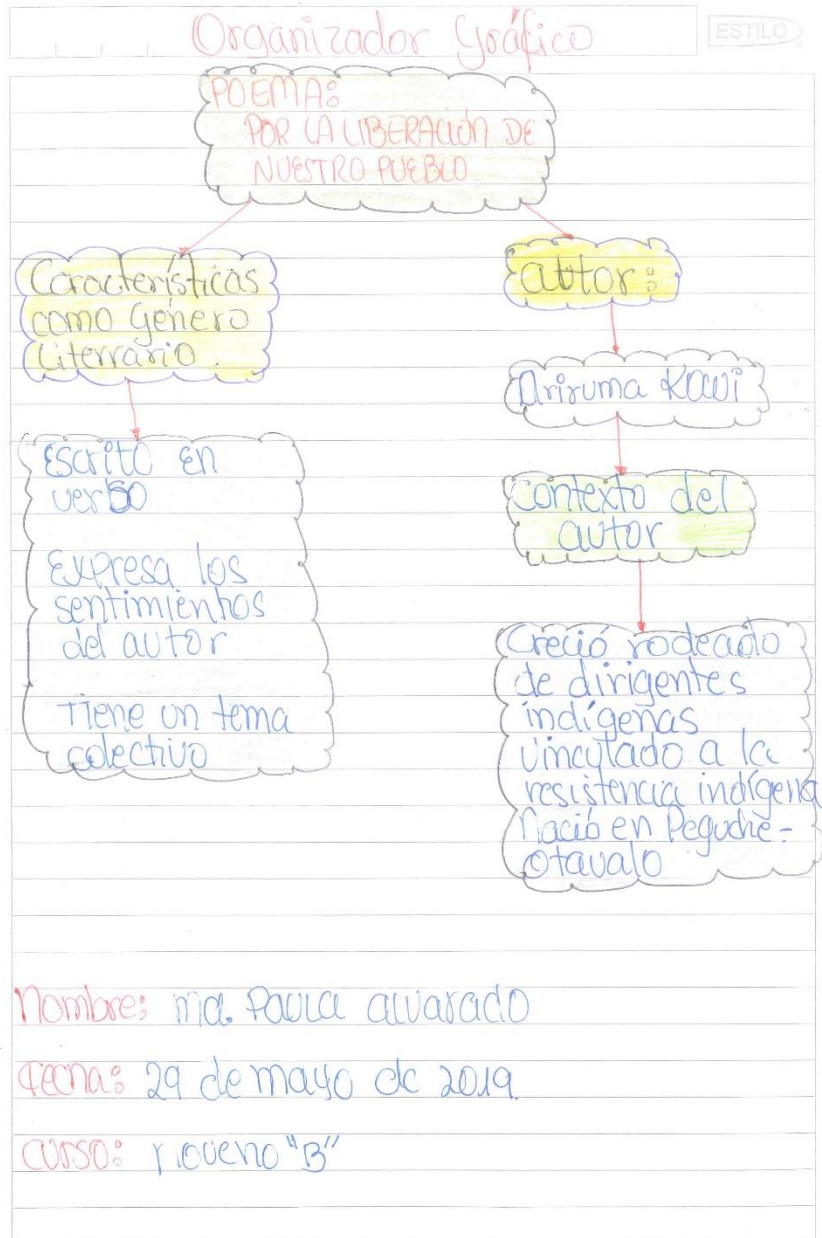 Organizador Gráfico
ESTILO
POEMA:
POR LA LIBERACIÓN DE
NUESTRO PUEBLO
Características
como Género
Literrario.
autor:
Ariruma Kowi
Escrito en
verso
Expresa los
sentimientos
del autor
Tiene un tema
colectivo
contexto del
autor
Creció rodeado
de dirigentes
indígenas
vinculado a la
resistencia indígena
Nació en Peguche-
Otavalo
Nombre: Ma. Paula Alvarado
Fecha: 29 de mayo de 2019.
Curso: Noveno "B"